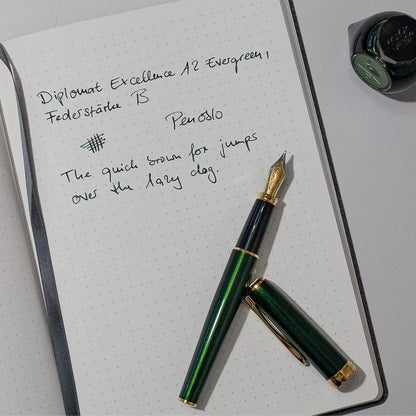 Diplomat Excellence A2 Evergreen,
Federstärke B
Penoblo
The quick brown fox jumps
over the lazy dog.